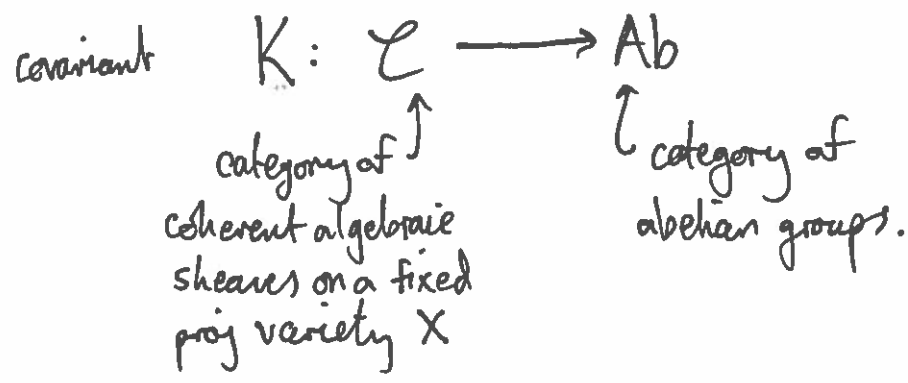 covariant K : C ⟶ Ab
category of
coherent algebraic
sheaves on a fixed
proj variety X
category of
abelian groups.